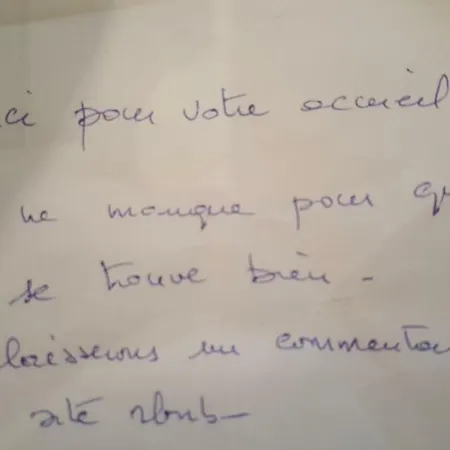 ci pour votre accueil
ne manque pour qu
se trouve bien -
laisserons un commentai
site